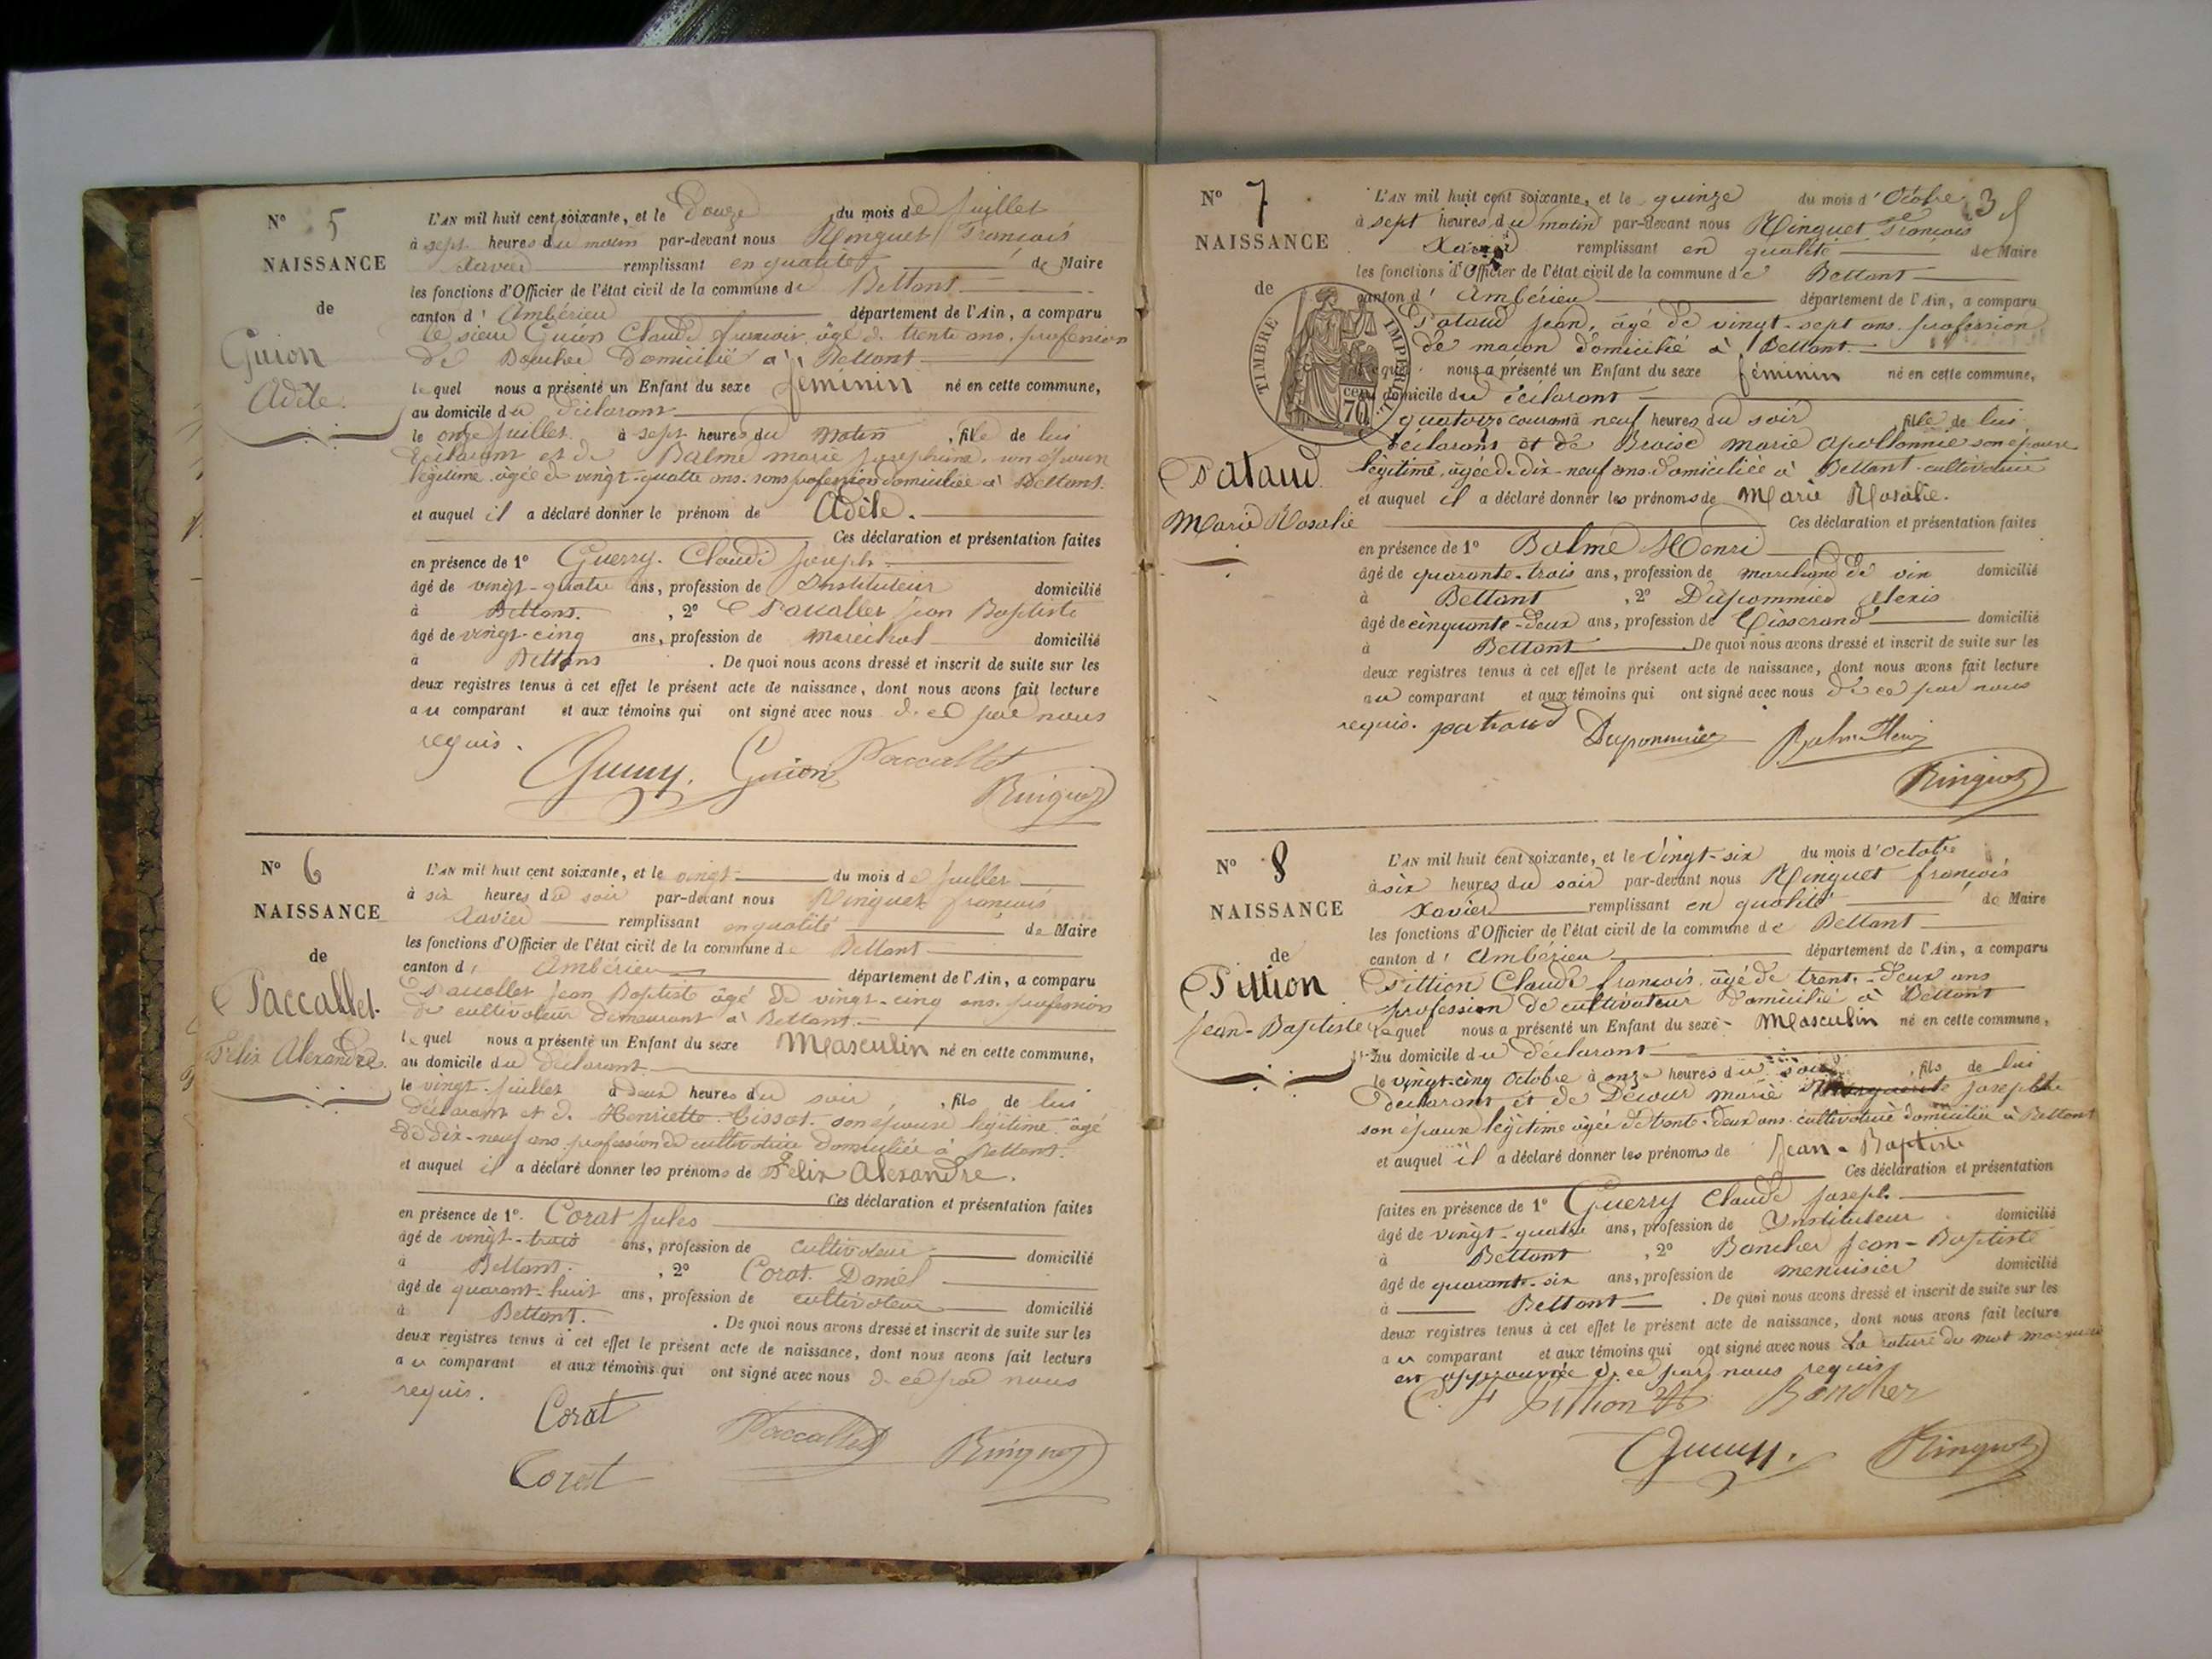 N° 5
NAISSANCE
de
Guion
Adèle.
L'AN mil huit cent soixante, et le douze du mois de Juillet
à sept heures du matin par-devant nous Ringuet François
Xavier remplissant en qualité de Maire
les fonctions d'Officier de l'état civil de la commune de Bettant
canton d' Ambérieu département de l'Ain, a comparu
le sieur Guion Claude françois âgé de trente ans, profession
de Boucher domicilié à Bettant
lequel nous a présenté un Enfant du sexe féminin né en cette commune,
au domicile du déclarant
le onze Juillet à sept heures du matin, fille de lui
déclarant et de Balme marie josephine, son épouse
légitime âgée de vingt-quatre ans. sans profession domiciliée à Bettant.
et auquel il a déclaré donner le prénom de Adèle.
Ces déclaration et présentation faites
en présence de 1° Guerry. Claude joseph
âgé de vingt-quatre ans, profession de Instituteur domicilié
à Bettant. , 2° Paccallet jean Baptiste
âgé de vingt-cinq ans, profession de maréchal domicilié
à Bettant . De quoi nous avons dressé et inscrit de suite sur les
deux registres tenus à cet effet le présent acte de naissance, dont nous avons fait lecture
au comparant et aux témoins qui ont signé avec nous de ce par nous
requis.
Guerry. Guion Paccallet
Ringuet
N° 6
NAISSANCE
de
Paccallet.
Félix Alexandre.
L'AN mil huit cent soixante, et le vingt du mois de juillet
à six heures du soir par-devant nous Ringuet françois
Xavier remplissant en qualité de Maire
les fonctions d'Officier de l'état civil de la commune de Bettant
canton d' Ambérieu département de l'Ain, a comparu
Paccallet jean Baptiste âgé de vingt-cinq ans, profession
de cultivateur demeurant à Bettant.
lequel nous a présenté un Enfant du sexe Masculin né en cette commune,
au domicile du déclarant
le vingt-juillet à deux heures du soir, fils de lui
déclarant et de Henriette Tissot son épouse légitime âgé
de dix-neuf ans profession de cultivatrice domiciliée à Bettant.
et auquel il a déclaré donner les prénoms de Félix Alexandre.
Ces déclaration et présentation faites
en présence de 1°. Corat Jules
âgé de vingt-trois ans, profession de cultivateur domicilié
à Bettant. , 2° Corat. Daniel
âgé de quarant-huit ans, profession de cultivateur domicilié
à Bettant. . De quoi nous avons dressé et inscrit de suite sur les
deux registres tenus à cet effet le présent acte de naissance, dont nous avons fait lecture
au comparant et aux témoins qui ont signé avec nous de ce par nous
requis.
Corat
Paccallet Ringuet
Corat
N° 7
NAISSANCE
de
TIMBRE IMPERIAL
70 cen
Pataud.
Marie Rosalie
3
L'AN mil huit cent soixante, et le quinze du mois d'Octobre
à sept heures du matin par-devant nous Ringuet François
Xavier remplissant en qualité de Maire
les fonctions d'Officier de l'état civil de la commune de Bettant
canton d' Ambérieu département de l'Ain, a comparu
Pataud jean, âgé de vingt-sept ans. profession
de maçon domicilié à Bettant.
lequel nous a présenté un Enfant du sexe féminin né en cette commune,
domicile du déclarant
quatorze courant à neuf heures du soir, fille de lui
déclarant et de Broise marie apollonnie son épouse
légitime, âgée de dix-neuf ans domiciliée à Bettant cultivatrice
et auquel il a déclaré donner les prénoms de Marie Rosalie.
Ces déclaration et présentation faites
en présence de 1° Balme Henri
âgé de quarante-trois ans, profession de marchand de vin domicilié
à Bettant , 2° Dupommier Alexis
âgé de cinquante-deux ans, profession de Tisserand domicilié
à Bettant . De quoi nous avons dressé et inscrit de suite sur les
deux registres tenus à cet effet le présent acte de naissance, dont nous avons fait lecture
au comparant et aux témoins qui ont signé avec nous de ce par nous
requis. pataud Dupommier Balme Henri
Ringuet
N° 8
NAISSANCE
de
Pittion
jean-Baptiste
L'AN mil huit cent soixante, et le vingt-six du mois d'octobre
à six heures du soir par-devant nous Ringuet françois
Xavier remplissant en qualité de Maire
les fonctions d'Officier de l'état civil de la commune de Bettant
canton d' Ambérieu département de l'Ain, a comparu
Pittion Claude françois âgé de trente-deux ans
profession de cultivateur domicilié à Bettant
lequel nous a présenté un Enfant du sexe Masculin né en cette commune,
au domicile du déclarant
le vingt-cinq Octobre à onze heures du soir, fils de lui
déclarant et de Decour marie Marguerite josephte
son épouse légitime âgée de trente-deux ans cultivatrice domiciliée à Bettant
et auquel il a déclaré donner les prénoms de jean-Baptiste
Ces déclaration et présentation
faites en présence de 1° Guerry Claude joseph
âgé de vingt-quatre ans, profession de Instituteur domicilié
à Bettant , 2° Bancher jean-Baptiste
âgé de quarante-six ans, profession de menuisier domicilié
à Bettant . De quoi nous avons dressé et inscrit de suite sur les
deux registres tenus à cet effet le présent acte de naissance, dont nous avons fait lecture
au comparant et aux témoins qui ont signé avec nous La rature du mot
est approuvée de ce par nous requis
C. F Pittion Bancher
Guerry. Ringuet